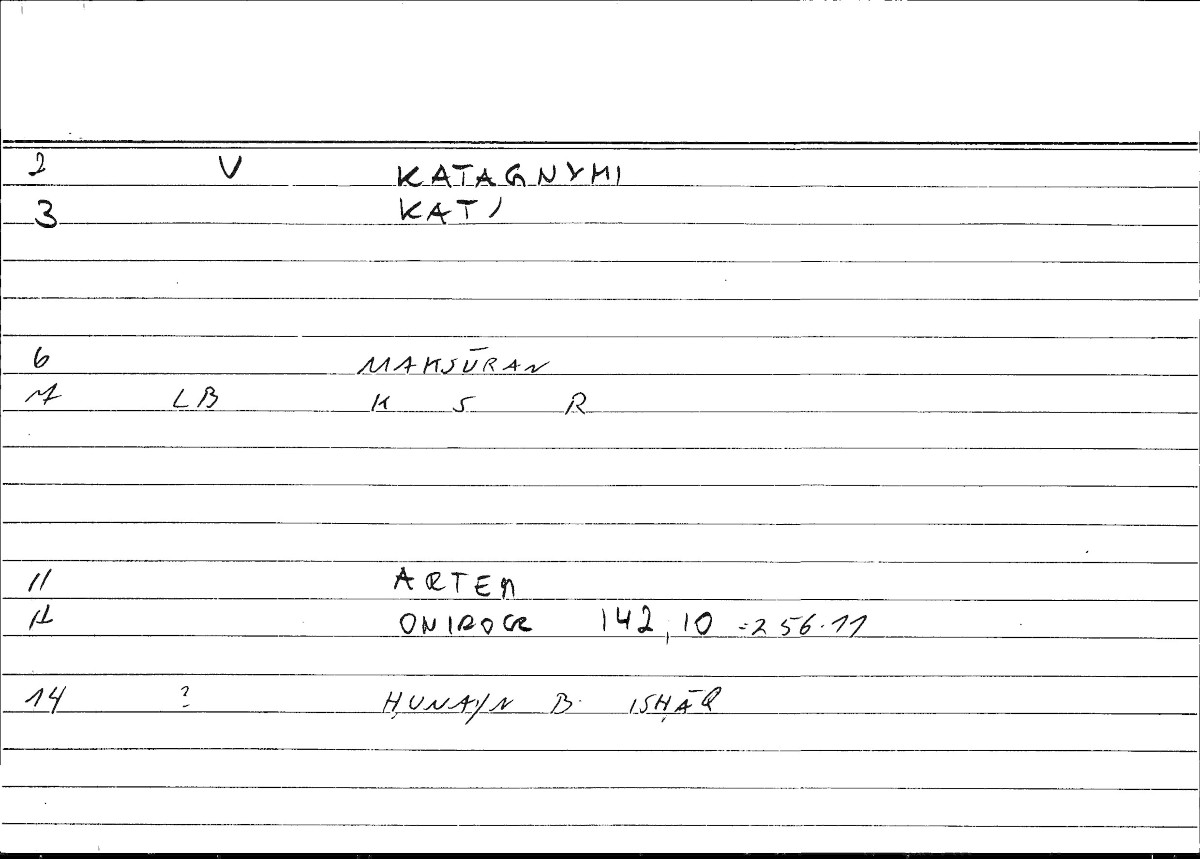 2 V KATAGNYMI
3 KAT/
6 MAKSŪRAN
LB K S R
11 ARTEM
12 ONIROCR 142,10 =256.11
14 ? ḤUNAYN B. ISḤĀQ